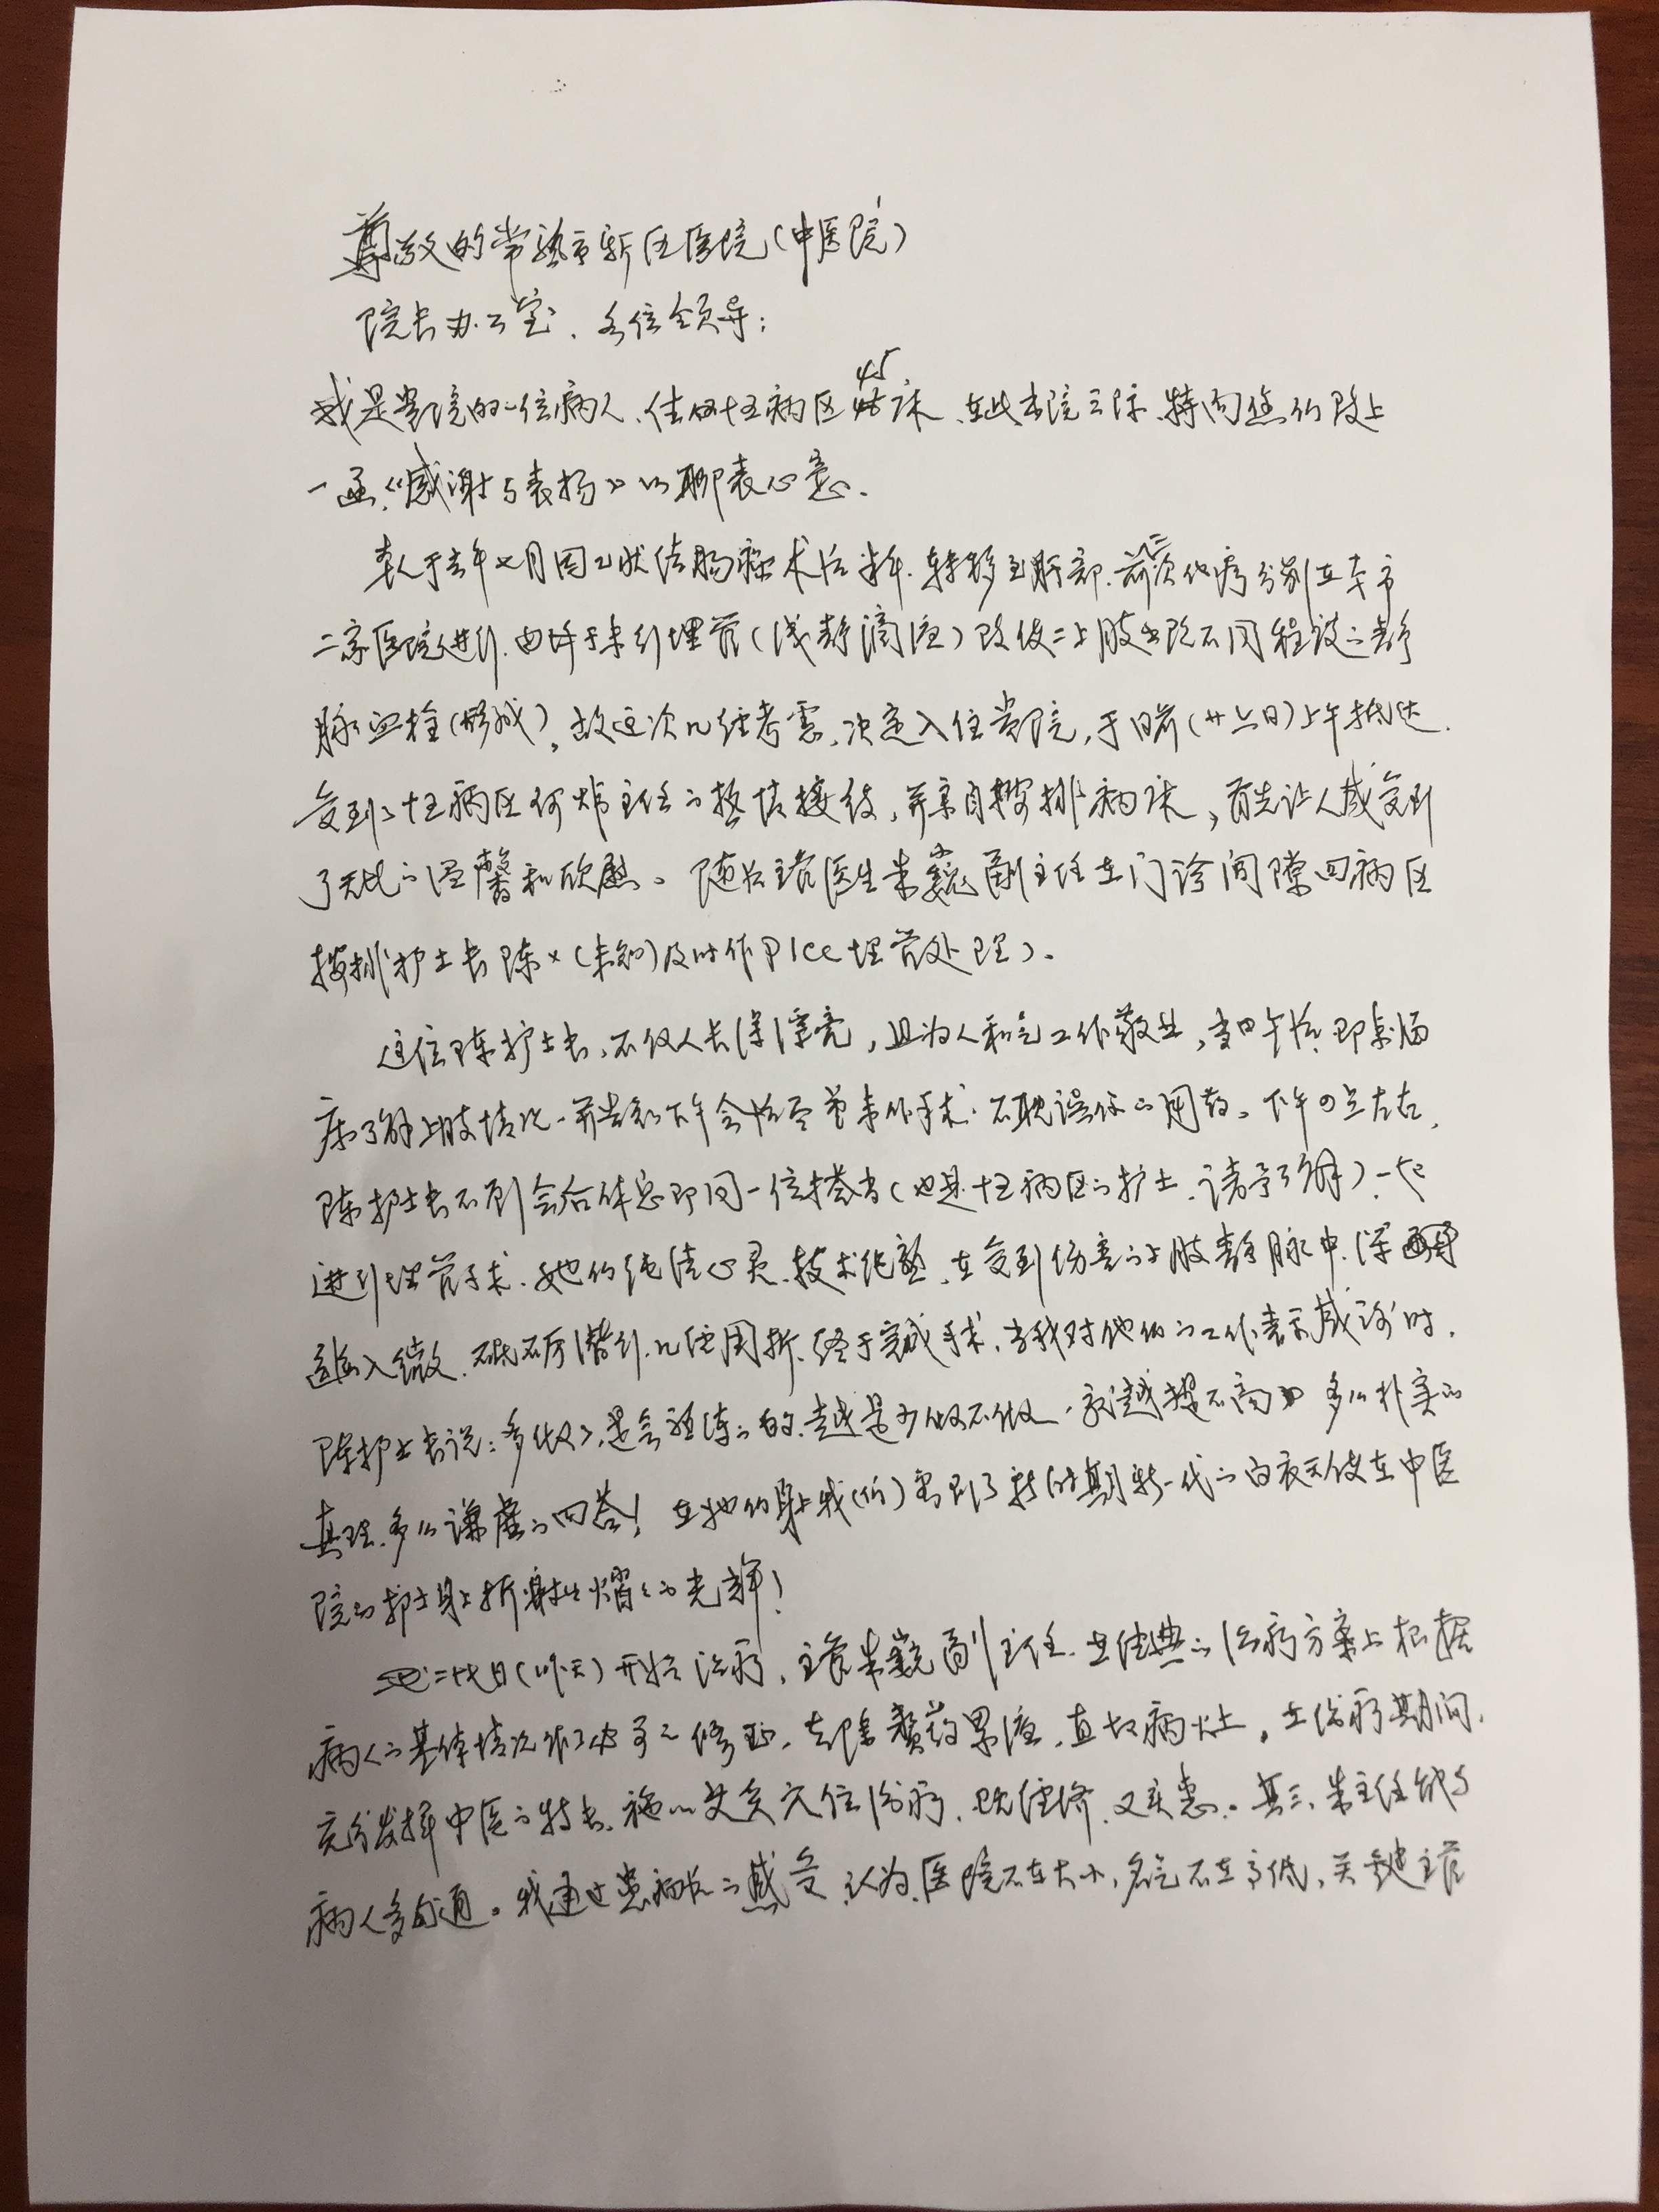 尊敬的常熟市新区医院(中医院)
院长办公室、各位领导:
我是贵院的一位病人、住四十五病区45床、在此出院之际、特向您们致上
一函《感谢与表扬》以聊表心意.
本人于去年七月因乙状结肠癌术后半年.转移至肝部.前二次化疗分别在本市
二家医院进行.由于未行埋管(浅静滴液)致使二上肢出现不同程度的静
脉血栓(形成)。故这次几经考虑,决定入住贵院,于日前(廿六日)上午抵达.
受到了十五病区何炜主任的热情接待,并亲自按排病床,首先让人感受到
了无比的温馨和欣慰。随后主管医生朱巍副主任在门诊间隙回病区
按排护士长陈×(未知)及时作PICC埋管处理)。
这位陈护士长、不仅人长得漂亮,且为人和气工作敬业,当日午后即来临
床了解上肢情况.并告知下午会后尽早来作手术.不耽误你的用药。下午4点左右、
陈护士长不到会后休息即同一位搭当(也是十五病区的护士、请予了解)一起
进行埋管手术.她们纯洁心灵、技术纯熟、在受到伤害的上肢静脉中.深
入细微.砥砺潜行.几经周折.终于完成手术.当我对他们的工作表示感谢时.
陈护士长说:多做了,是会锻练的.越是少做不做.就越提不高 多么朴实的
真理.多么谦虚的回答!在她们身上我(们)看到了新时期新一代的白衣天使在中医
院的护士身上折射出熠熠的光辉!
二十七日(昨天)开始治疗,主管朱巍副主任.在经典的治疗方案上根据
病人的基体情况作了必要的修正、去除赘药累液,直切病灶。在治疗期间.
充分发挥中医的特长、施以艾灸穴位治疗、既经济、又实惠。其三、朱主任能与
病人多沟通。我通过患病后的感受、认为.医院不在大小,名气不在高低,关键主管